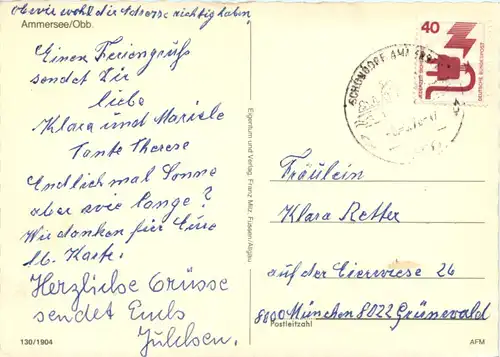 ob wir wohl die Adresse richtig haben
Ammersee/Obb.
Einen Feriengruß
sendet Dir
liebe
Klara und Mariele
Tante Therese
Endlich mal Sonne
aber wie lange?
Wir danken für Eure
lb. Karte.
Herzliche Grüsse
sendet Euch
Julchen.
130/1904
Eigentum und Verlag Franz Milz, Füssen/Allgäu
SCHONDORF AM AMMERSEE
40
JEDERZEIT SICHERHEIT
DEUTSCHE BUNDESPOST
Fräulein
Klara Retter
auf der Eierwiese 26
8000 München 8022 Grünewald
Postleitzahl
AFM